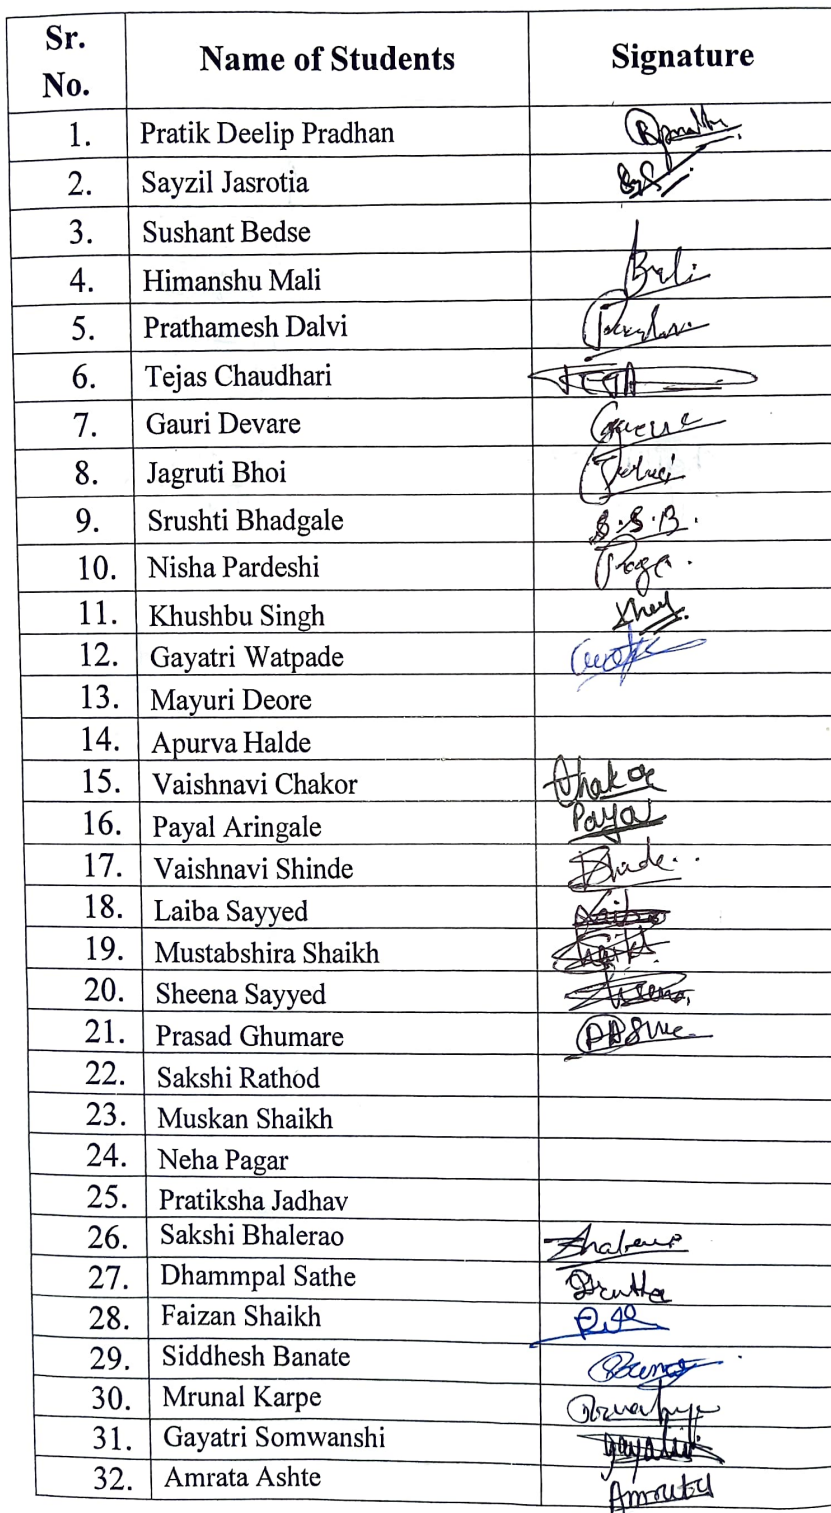 Sr. No. Name of Students Signature
1. Pratik Deelip Pradhan
2. Sayzil Jasrotia
3. Sushant Bedse
4. Himanshu Mali
5. Prathamesh Dalvi
6. Tejas Chaudhari
7. Gauri Devare
8. Jagruti Bhoi
9. Srushti Bhadgale S.S.B.
10. Nisha Pardeshi
11. Khushbu Singh
12. Gayatri Watpade
13. Mayuri Deore
14. Apurva Halde
15. Vaishnavi Chakor Chakor
16. Payal Aringale Payal
17. Vaishnavi Shinde
18. Laiba Sayyed Laiba
19. Mustabshira Shaikh Shaikh
20. Sheena Sayyed Sheena
21. Prasad Ghumare
22. Sakshi Rathod
23. Muskan Shaikh
24. Neha Pagar
25. Pratiksha Jadhav
26. Sakshi Bhalerao
27. Dhammpal Sathe
28. Faizan Shaikh
29. Siddhesh Banate
30. Mrunal Karpe
31. Gayatri Somwanshi
32. Amrata Ashte